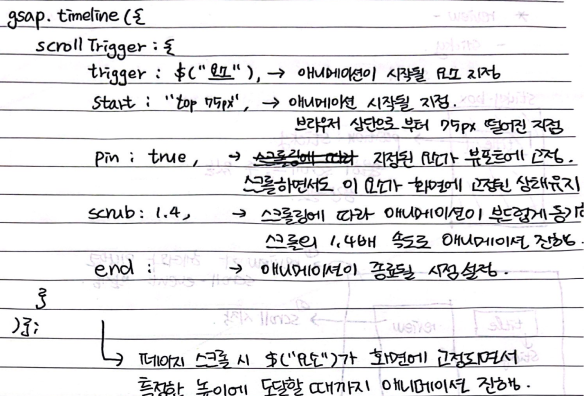 gsap. timeline ({
scroll Trigger : {
trigger : $("요소"), → 애니메이션이 시작될 요소 지정
start : "top 75px", → 애니메이션 시작될 지점.
브라우저 상단으로 부터 75px 떨어진 지점
pin : true, → 스크롤링에 따라 지정된 요소가 뷰포트에 고정.
스크롤하면서도 이 요소가 화면에 고정된 상태유지
scrub: 1.4, → 스크롤링에 따라 애니메이션이 부드럽게 동기화
스크롤의 1.4배 속도로 애니메이션 진행.
end : → 애니메이션이 종료될 시점 설정.
}
)};
↳ 페이지 스크롤 시 $("요소")가 화면에 고정되면서
특정한 높이에 도달할 때까지 애니메이션 진행.